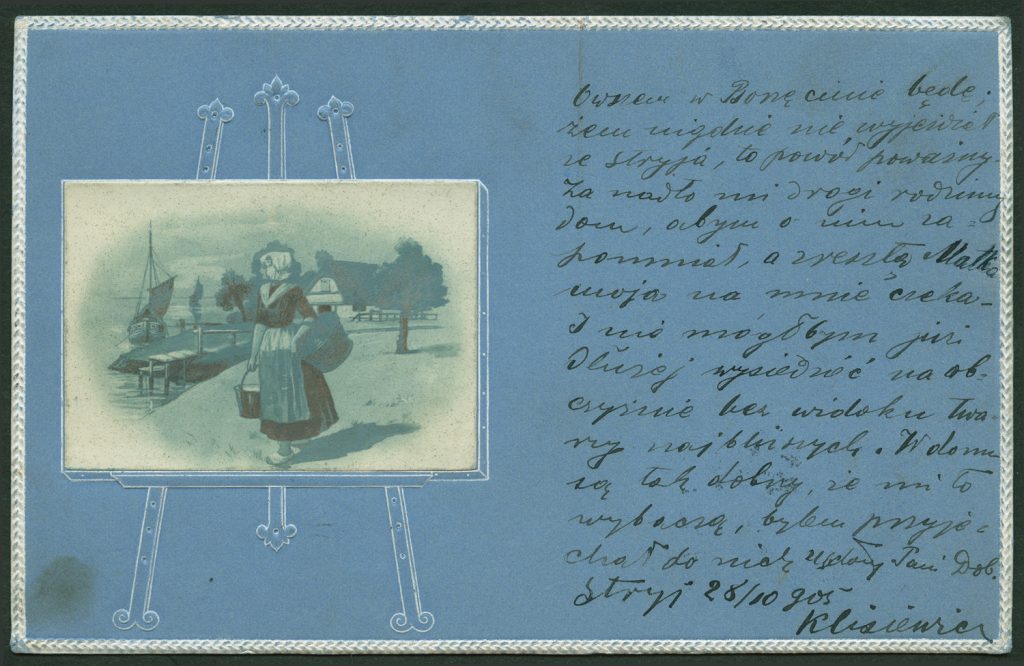 Owszem w Borzęcinie będę,
żem nigdzie nie wyjeżdżał
ze Stryja, to powód poważny.
Za nadto mi drogi rodzinny
dom, abym o nim za-
pomniał, a zresztą Matka
moja na mnie czeka.
I nie mógłbym już
dłużej wysiedzieć na ob-
czyźnie bez widoku twa-
rzy najbliższych. W domu
są tak dobrzy, że mi to
wybaczą, bylem przyje-
chał do nich Pani Dob.
Stryj 28/10 905
Klisiewicz